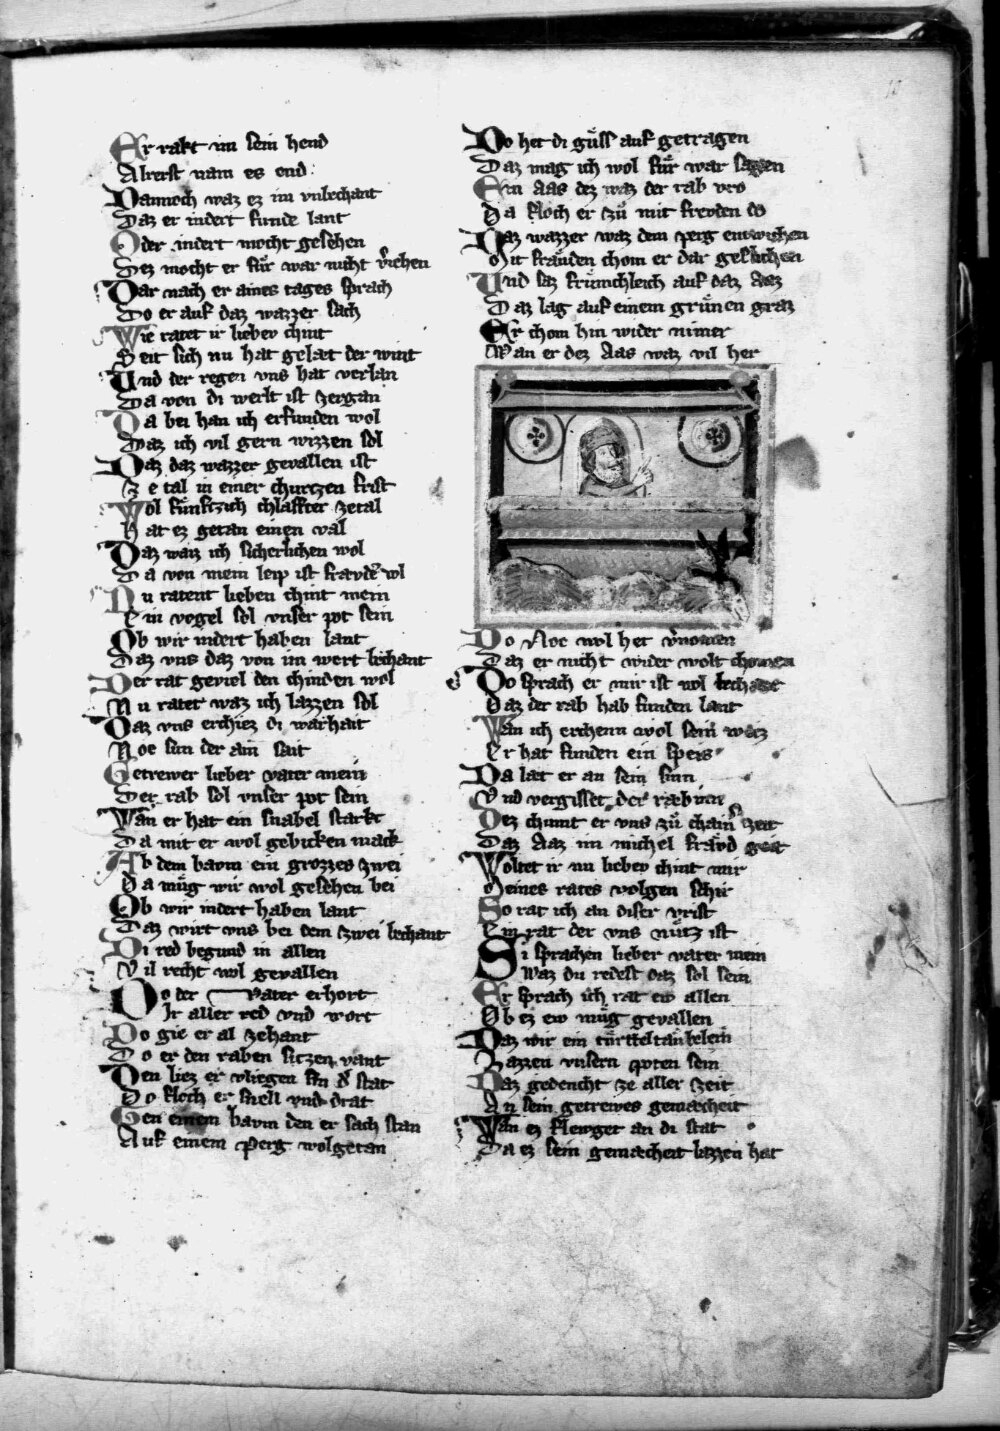 Er rakt im sein hend
Alrerst nam es end
Dannoch waz ez im vnbechant
Daz er indert funde lant
Oder indert mocht gesehen
Dez mocht er für war nicht v̓iehen
Dar nach er aines tages sprach
Do er auf daz wazzer sach
Wie ratet ir lieben chint
Seit sich nu hat gelæt der wint
Vnd der regen vns hat verlan
Da von di werlt ist zergan
Da bei han ich erfunden wol
Daz ich vil gern wizzen sol
Daz daz wazzer gevallen ist
Ze tal in einer churczen frist
Wol fünfczich chlaffter zetal
Hat ez getan einen val
Daz waiz ich sicherlichen wol
Da von mein leip ist fravdē vol
Nu ratent lieben chint mein
Ein vogel sol vnser pot sein
Ob wir indert haben lant
Daz vns daz von im wert bechant
Der rat geviel den chinden wol
Nu ratet waz ich lazzen sol
Daz vns erchiez di warhait
Noe sun der ain sait
Getrewer lieber vater mein
Der rab sol vnser pot sein
Wan er hat ein snabel starkt
Da mit er wol gebicken mack
Ab dem bavm ein grozzes zwei
Da müg wir wol gesehen bei
Ob wir indert haben lant
Daz wirt vns bei dem zwei bechant
Di red begund in allen
Vil recht wol gevallen
Do der vater erhort
Ir aller red vnd wort
Do gie er al zehant
Do er den raben sitzen vant
Den liez er vliegen an d̓ stat
Do floch er snell vnd drat
Gen einem bavm den er sach stan
Auf einem perg wolgetan
Do het di güss auf getragen
Daz mag ich wol für war sagen
Ein aas dez waz der rab vro
Da floch er zů mit frevden do
Daz wazzer waz dem perg entwichen
Mit fräuden chom er dar geslichen
Vnd saz frümchleich auf daz aaz
Daz lag auf einem grünen graz
Er chom hin wider nimer
Wan er dez Aas waz vil her
Do Noe wol het v̓nomen
Daz er nicht wider wolt chomen
Do sprach er mir ist wol bechant
Daz der rab hab funden lant
Wan ich erchenn wol sein weiz
Er hat funden ein speis
Da lat er an sein sinn
Vnd vergisset der ræbinn
Dez chumt er vns zů chainr̓ zeit
Daz Aaz im michel fravd geit
Woltet ir nu lieben chint mir
Meines rates volgen schir
So rat ich an diser vrist
Ein rat der vns nütz ist
Si sprachen lieber vater mein
Waz du redest daz sol sein
Er sprach ich rat ew allen
Ob ez ew müg gevallen
Daz wir ein türtteltäubelein
Lazzen vnsern poten sein
Daz gedencht ze aller zeit
An sein getrewes gemæcheit
Wan ez flewget an di stat
Da ez sein gemæcheit lazzen hat